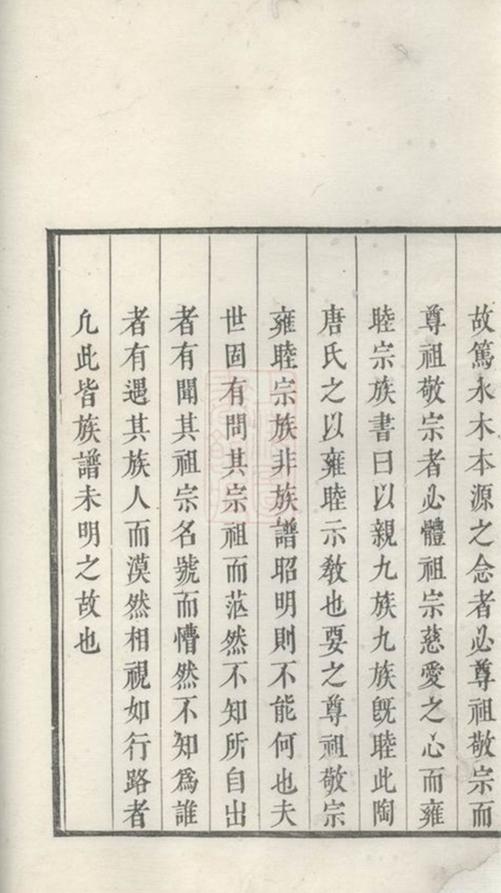 故篤水木本源之念者必尊祖敬宗而
尊祖敬宗者必體祖宗慈愛之心而雍
睦宗族書曰以親九族九族既睦此陶
唐氏之以雍睦示教也要之尊祖敬宗
雍睦宗族非族譜昭明則不能何也夫
世固有問其宗祖而茫然不知所自出
者有聞其祖宗名號而懵然不知為誰
者有遇其族人而漠然相視如行路者
凢此皆族譜未明之故也